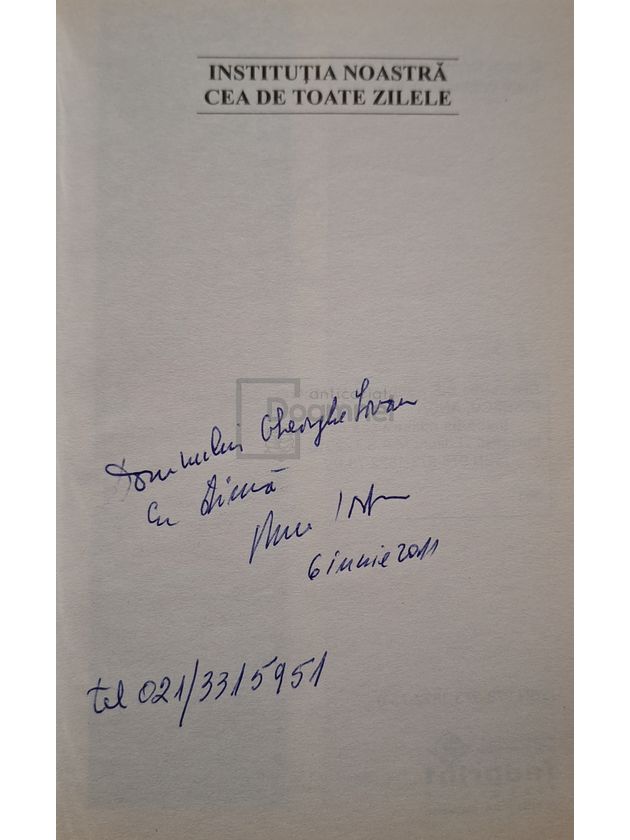 INSTITUŢIA NOASTRĂ
CEA DE TOATE ZILELE
anticariat
Dogmnei
Domnului Gheorghe Iovan
Cu stimă
6 iunie 2011
tel 021/3315951